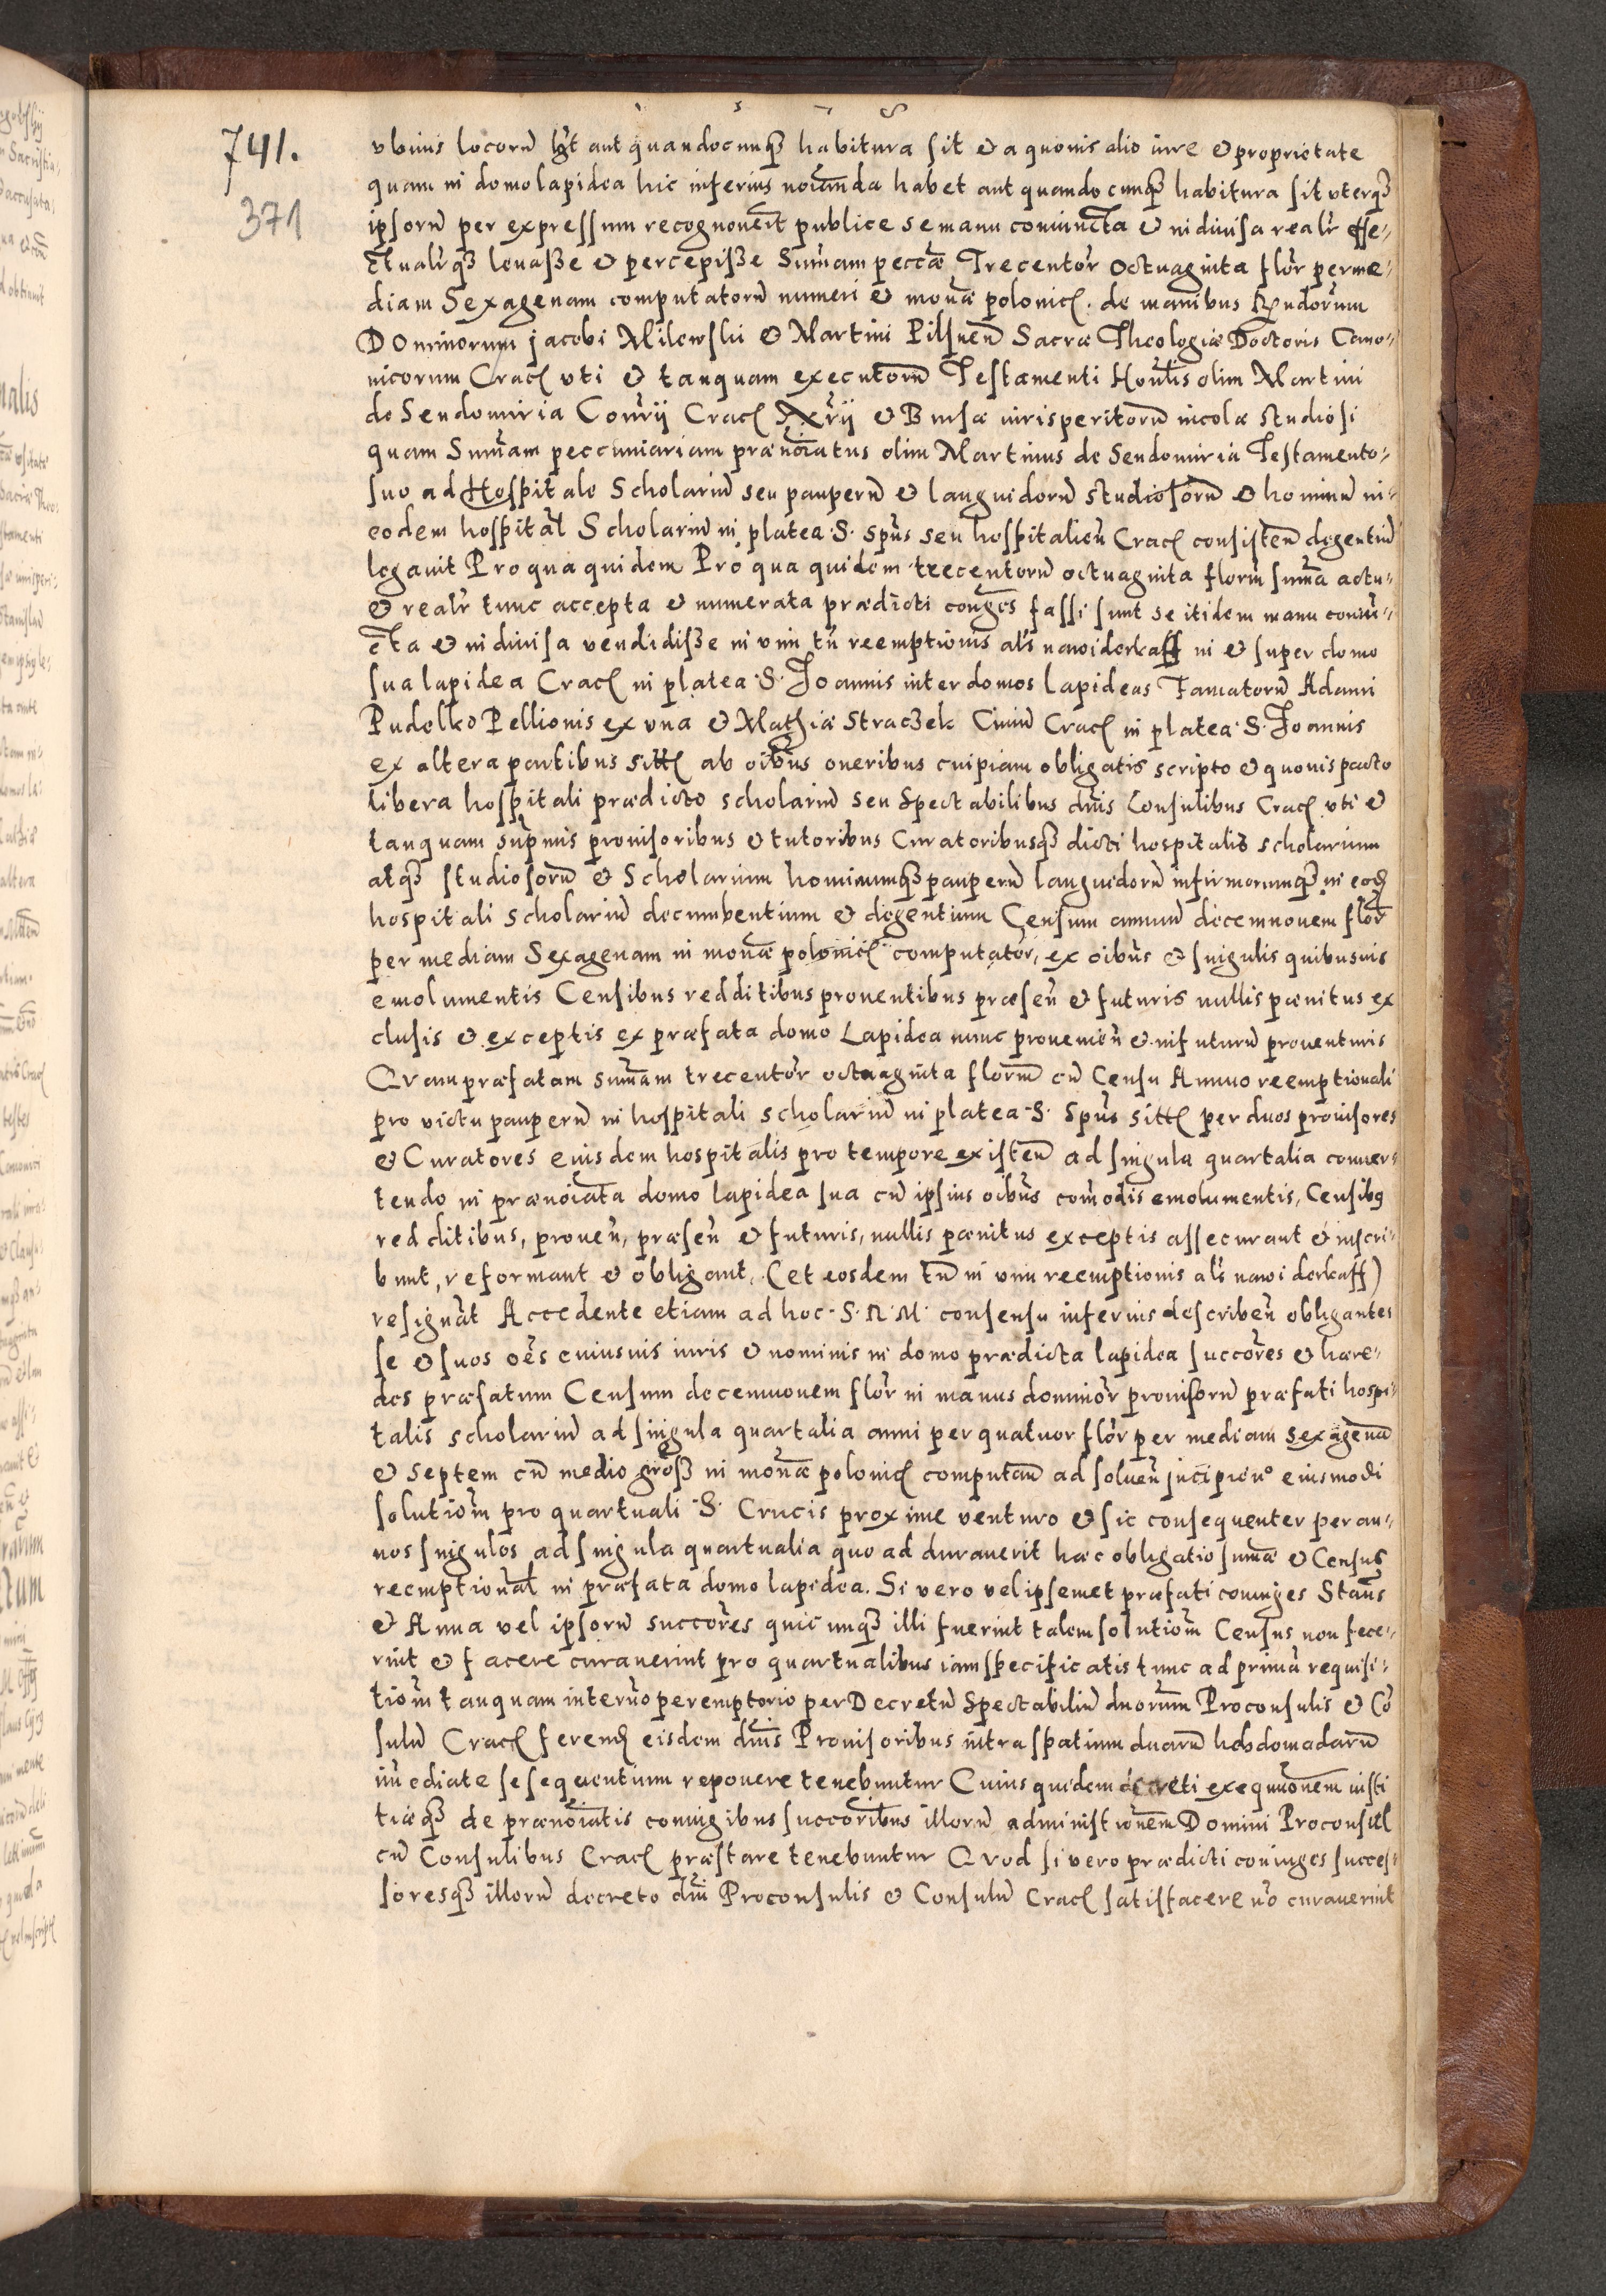 741.
371
vbiuis locorũ ht̃ aut quandocunqȝ habitura sit & a quouis alio iure & proprietate
quam in domo lapidea hic inferius noĩanda habet aut quandocunqȝ habitura sit vterqȝ
ipsorũ per expressum recognouert̃ publice se manu coniuncta & indiuisa realr̃ effe„
ctualr̃qȝ leuasse & percepisse Sum̃am pecc̃æ Trecentor̃ Octuaginta flor̃ per me„
diam Sexagenam computatorũ numeri & monæ polonicȩ. de manibus Rñdorum
Dominorum Jacobi Milewski & Martini Pilsneñ Sacræ Theologiæ Doctoris Cano„
nicorum Cracȩ vti & tanquam executorũ Testamenti Honl̃is olim Martini
de Sendomiria Conr̃ij Cracȩ Axr̃ij & Bursæ iurisperitorũ incolæ studiosi
quam Sum̃am peccuniariam prænoĩatus olim Martinus de Sendomiria Testamento„
suo ad Hospitale Scholariũ seu pauperũ & languidorũ studiosorũ & hominũ in„
eodem hospital̃ Scholariũ in platea S. Spũs seu hospitalieñ Cracȩ consisteñ degentiũ
legauit Pro qua quidem Pro qua quidem trecentorũ octuaginta florũ sum̃a actu„
& realr̃ tunc accepta & numerata prædicti conges̃ fassi sunt se itidem manu coniũ„
cta & indiuisa vendidisse in vim tñ reemptionis als̃ nawiderkaff in & super domo
sua lapidea Cracȩ in platea S. Joannis inter domos lapideas Famatorũ Adami
Pudelko Pellionis ex vna & Mathiæ Straczek Ciuiũ Cracȩ in platea S. Joannis
ex altera partibus sittȩ ab oib̃us oneribus cuipiam obligatis scripto & quouis pacto
libera hospitali prædicto scholariũ seu Spectabilibus dñis Consulibus Cracȩ vti &
tanquam sup̃mis prouisoribus & tutoribus Curatoribusqȝ dicti hospitalis scholarium
atqȝ studiosorũ & Scholarium hominumqȝ pauperũ languidorũ infirmorumqȝ in eodȩ
hospitali scholariũ decumbentium & degentium Censum annuũ decemnouem flor̃
per mediam Sexagenam in monæ polonicȩ computator̃, ex oib̃us & singulis quibusuis
emolumentis Censibus redditibus prouentibus præseñ & futuris nullis pænitus ex
clusis & exceptis ex præfata domo Lapidea nunc prouenieñ & in futurũ prouenturis
Quam præfatam sum̃am trecentor̃ octuaginta florũm cũ Censu Annuo reemptionali
pro victu pauperũ in hospitali scholariũ in platea S. Spũs sittȩ per duos prouisores
& Curatores eiusdem hospitalis pro tempore existeñ ad singula quartalia conuer„
tendo in prænoĩata domo lapidea sua cũ ipsius oib̃us com̃odis emolumentis, Censibꝫ
redditibus, proueñ, præseñ & futuris, nullis pænitus exceptis assecurant & inscri„
bunt, reformant & obligant, (et eosdem tñ in vim reemptionis als̃ nawiderkaff)
resignãt Accedente etiam ad hoc S. R. M. consensu inferius describeñ obligantes
se & suos oẽs cuiusuis iuris & nominis in domo prædicta lapidea succores̃ & hære„
des præfatum Censum decemnouem flor̃ in manus dominor̃ prouisorũ præfati hospi„
talis scholariũ ad singula quartalia anni per quatuor flor̃ per mediam sexagenã
& septem cũ medio gross̃ in monæ polonicȩ computañ ad solueñ incipieñ° eiusmodi
solutiom̃ pro quartuali S. Crucis proxime venturo & sic consequenter per an„
nos singulos ad singula quartualia quo ad durauerit hæc obligatio sum̃æ & Census
reemptional̃ in præfata domo lapidea. Si vero vel ipsemet præfati coniuges Stañs
& Anna vel ipsorũ succores̃ quicunqȝ illi fuerint talem solutiom̃ Census non fece„
rint & facere curauerint pro quartualibus iam specificatis tunc ad primã requisi„
tiom̃ tanquam in termõ peremptorio per Decretũ Spectabiliũ dñorum Proconsulis & Cõ
sulũ Cracȩ ferendȩ eisdem dñis Prouisoribus intra spatium duarũ hebdomadarũ
im̃ediate se sequentium reponere tenebuntur Cuius quidem decreti exequutionem iusti
tiæqȝ de prænoĩatis coniugibus succorib̃us illorũ administrationem Domini Proconsul
cũ Consulibus Cracȩ præstare tenebuntur Quod si vero prædicti coniuges succes„
soresqȝ illorũ decreto dñi Proconsulis & Consulũ Cracȩ satisfacere nõ curauerint